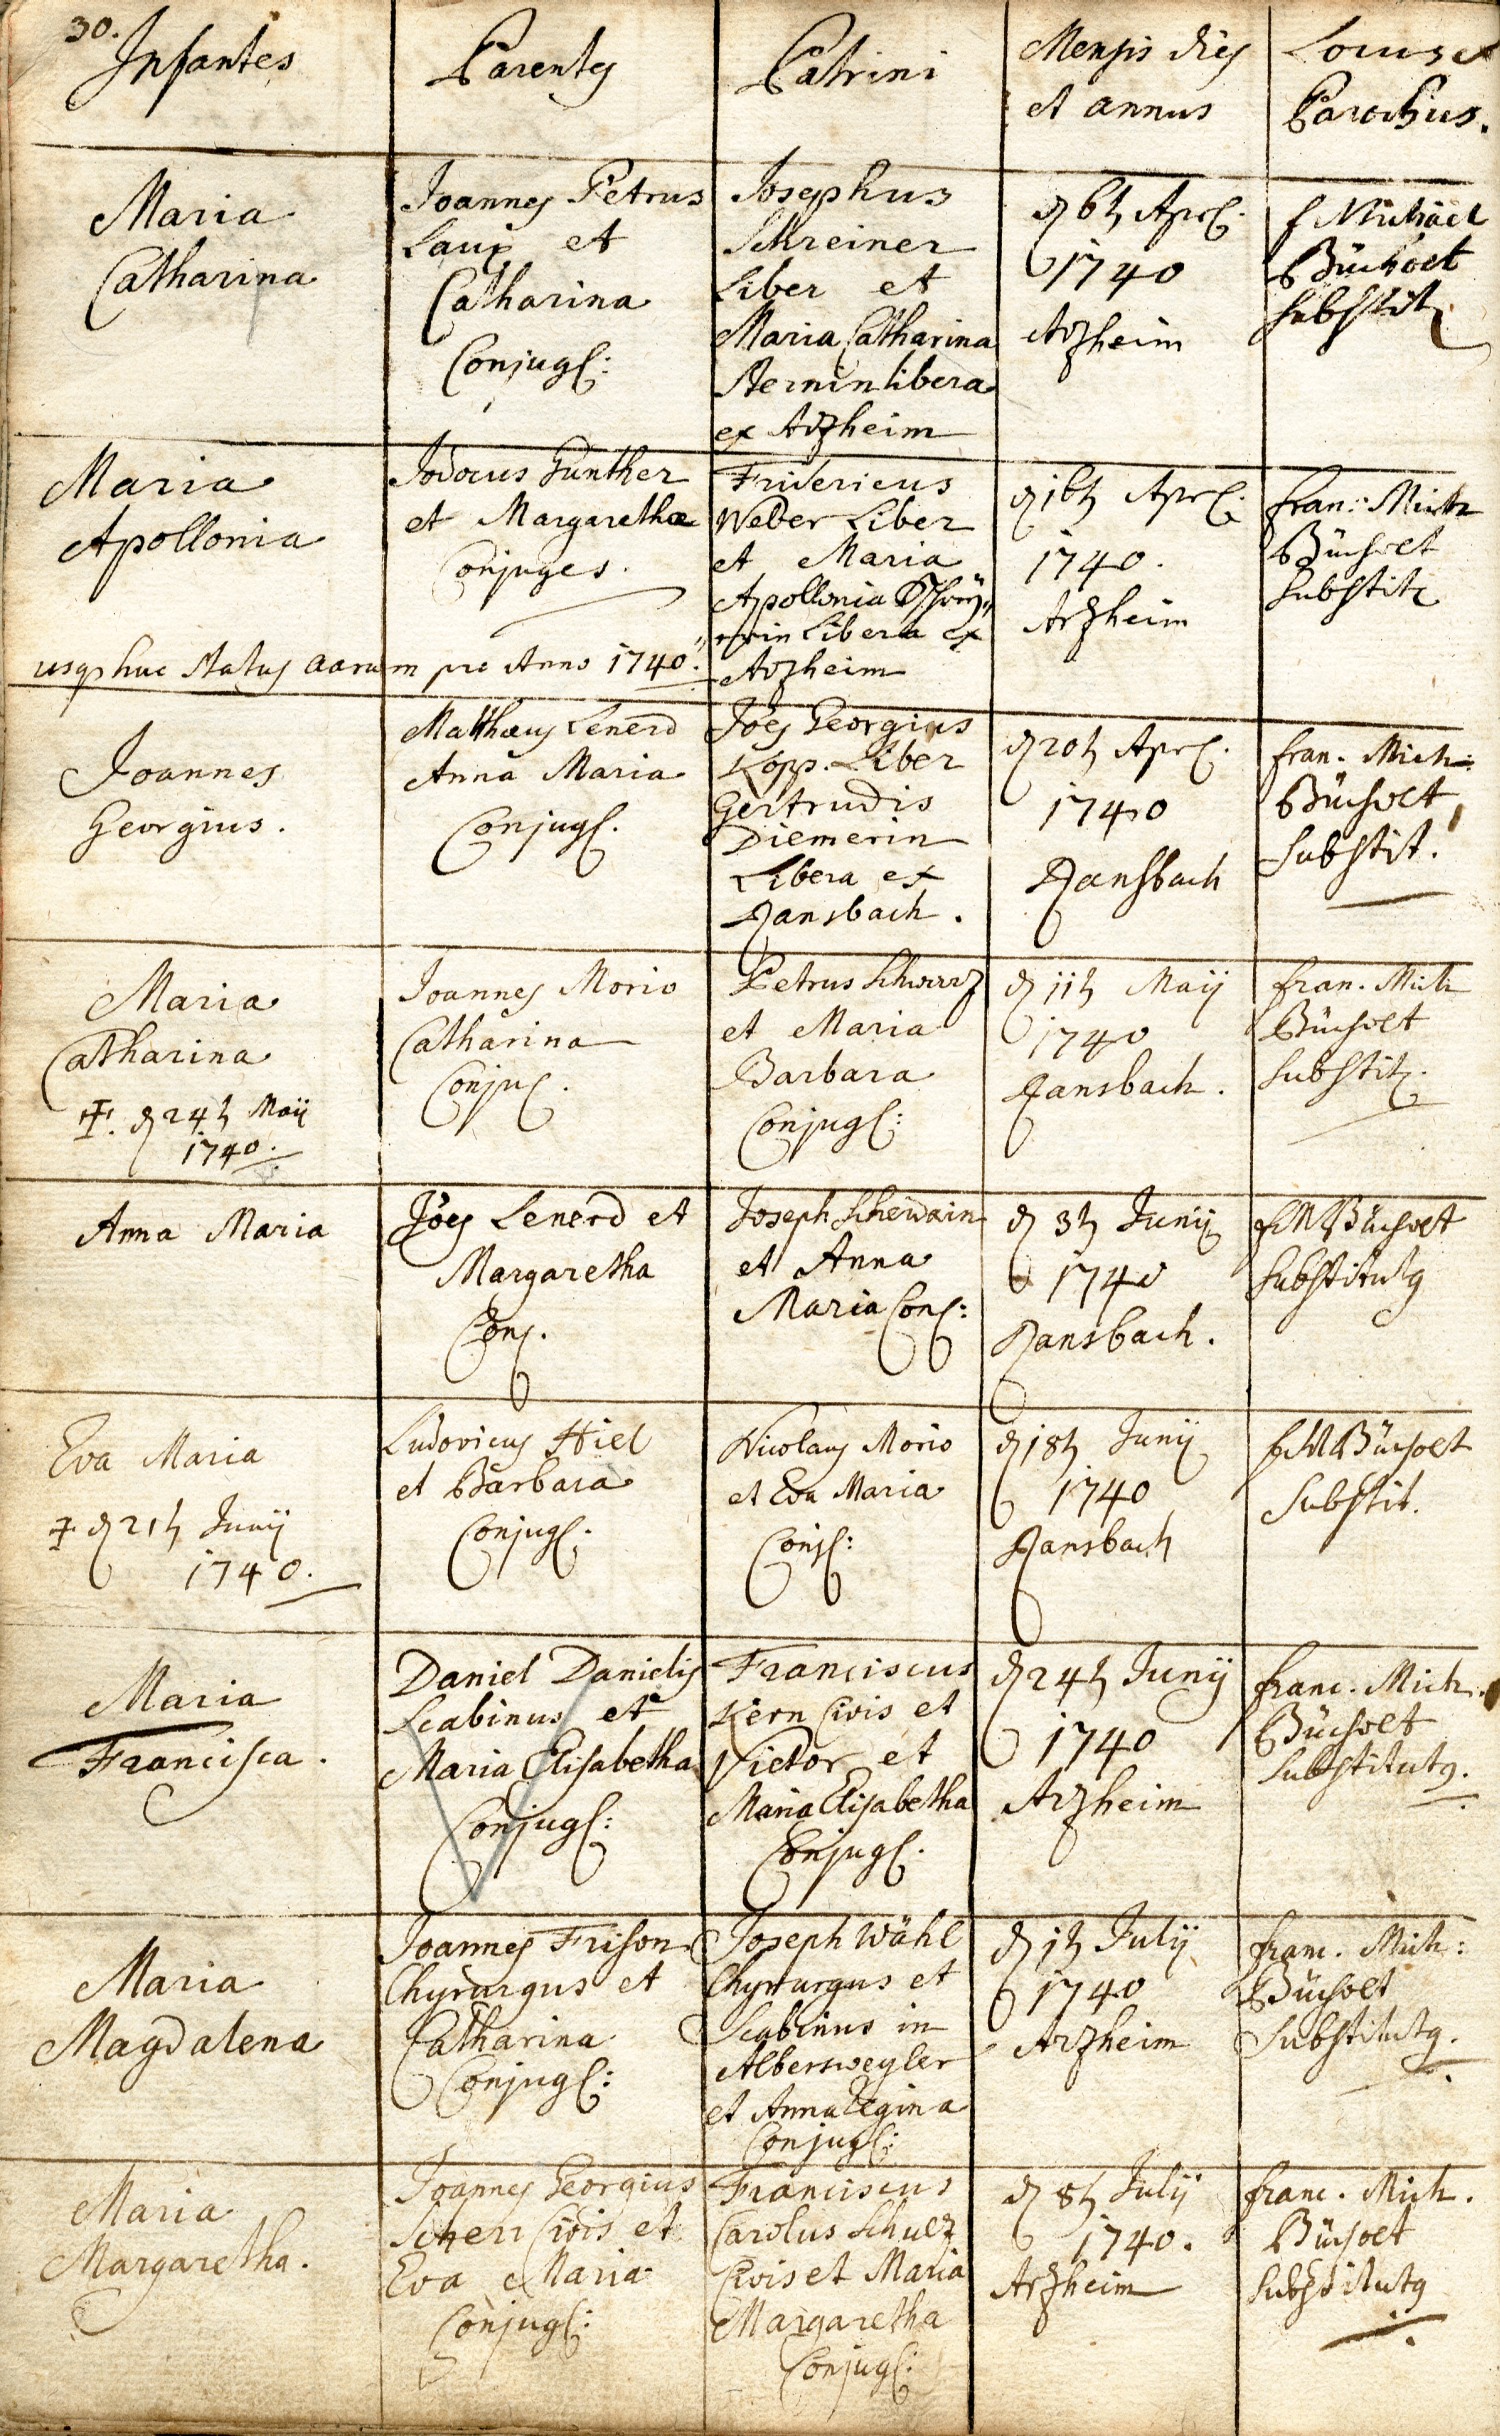 30.
Infantes
Parentes
Patrini
Mensis dies
et annus
Locus et
Parochus.
Maria
Catharina
Joannes Petrus
Laux et
Catharina
Conjug:
Josephus
Schreiner
Liber et
Maria Catharina
Sternin libera
ex Arzheim
d 6t Apr.
1740
Arzheim
f Michael
Bücholt
substit
Maria
Apollonia
Jodocus Günther
et Margaretha
Conjuges.
Fridericus
Weber Liber
et Maria
Apollonia
Libera ex
Arzheim
d 16t Apr.
1740.
Arzheim
fran: Mich
Bücholt
substit
usq huc status aarum pro Anno 1740.
Joannes
Georgius.
Matthæus Lenerd
Anna Maria
Conjug.
Joes Georgius
Kopp. Liber
Gertrudis
Diemerin
Libera ex
Ransbach.
d 20t Apr.
1740
Ransbach
fran. Mich:
Bücholt
substit.
Maria
Catharina
†. d 24t Maij
1740.
Joannes Morio
Catharina
Conju.
Petrus Schwarz
et Maria
Barbara
Conjug:
d 11t Maij
1740
Ransbach.
fran. Mich
Bücholt
substit.
Anna Maria
Joes Lenerd et
Margaretha
Conj.
Joseph
et Anna
Maria Con:
d 3t Junij
1740
Ransbach.
f M Bücholt
substitutg
Eva Maria
† d 21t Junij
1740.
Ludovicus Hiel
et Barbara
Conjug.
Nicolaus Morio
et Eva Maria
Conj:
d 18t Junij
1740
Ransbach
f M Bücholt
substit.
Maria
Francisca.
Daniel Danielis
Scabinus et
Maria Elisabetha
Conjug:
Franciscus
Kern Civis et
Vietor et
Maria Elisabetha
Conjug.
d 24t Junij
1740
Arzheim
franc. Mich.
Bücholt
substitutg.
Maria
Magdalena
Joannes Frison
Chyrurgus et
Catharina
Conjug:
Joseph Wähl
Chyrurgus et
Scabinus in
Albersweyler
et Anna Regina
Conjug:
d 1t Julij
1740
Arzheim
franc. Mich:
Bücholt
substitutg.
Maria
Margaretha.
Joannes Georgius
Scherr Civis et
Eva Maria
Conjug:
Franciscus
Carolus Schulz
Civis et Maria
Margaretha
Conjug:
d 8t Julij
1740.
Arzheim
franc. Mich.
Bücholt
substitutg